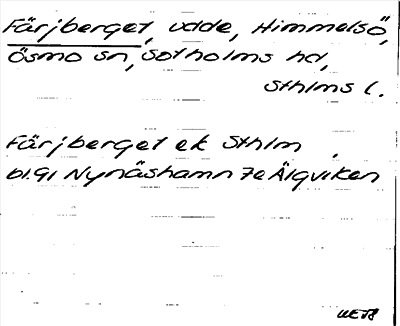 Färjberget, udde, Himmelsö,
Ösmo sn, Sotholms hd,
Sthlms l.
Färjberget ek Sthlm
bl.91 Nynäshamn 7e Älgviken